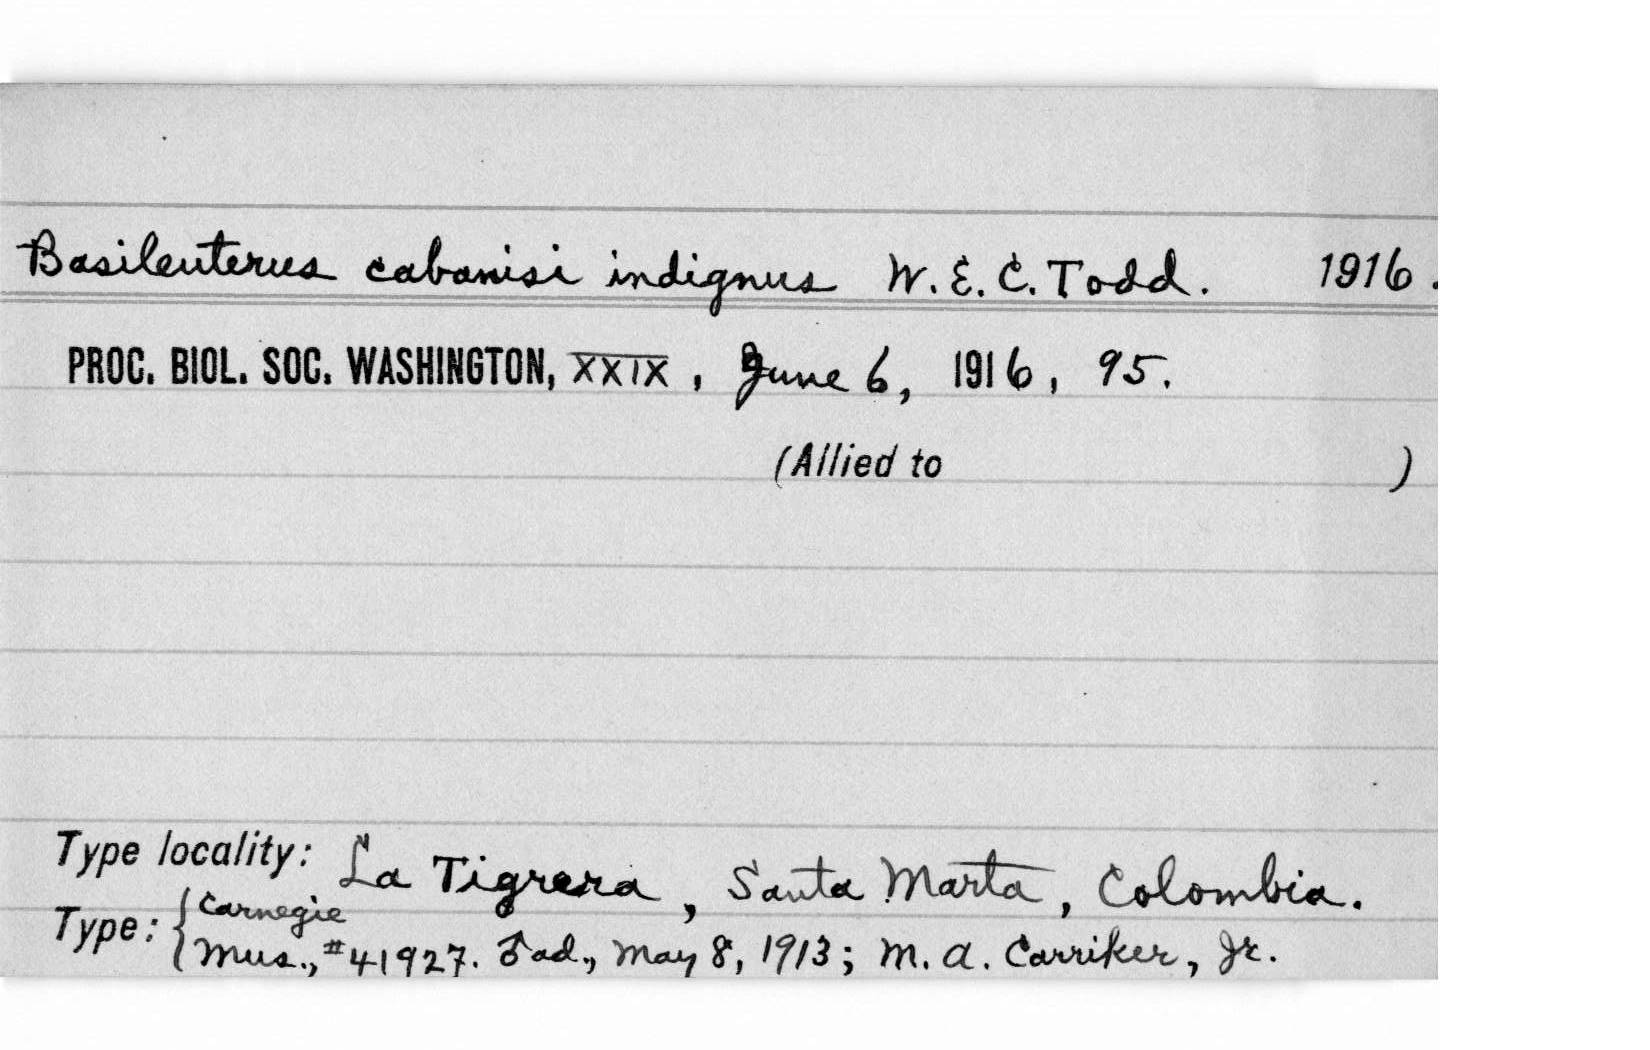 Basileuterus cabanisi indignus W. E. C. Todd. 1916.
PROC. BIOL. SOC. WASHINGTON, XXIX, June 6, 1916, 95.
(Allied to )
Type locality: La Tigrera, Santa Marta, Colombia.
Type: { Carnegie
Mus., #41927. ♂ ad., May 8, 1913; M. A. Carriker, Jr.